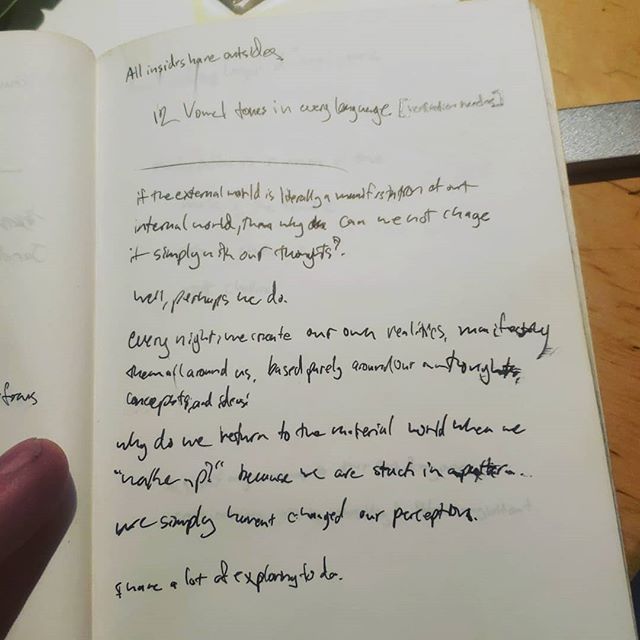 All insides have outsides
12 Vowel tones in every language [verification needed]
if the external world is literally a manifestation of our
internal world, then why can we not change
it simply with our thoughts?
Well, perhaps we do.
every night, we create our own realities, manifesting
them all around us, based purely around our own thoughts,
concepts, and ideas!
why do we return to the material world when we
"wake up?" because we are stuck in a pattern...
we simply havent changed our perception.
I have a lot of exploring to do.